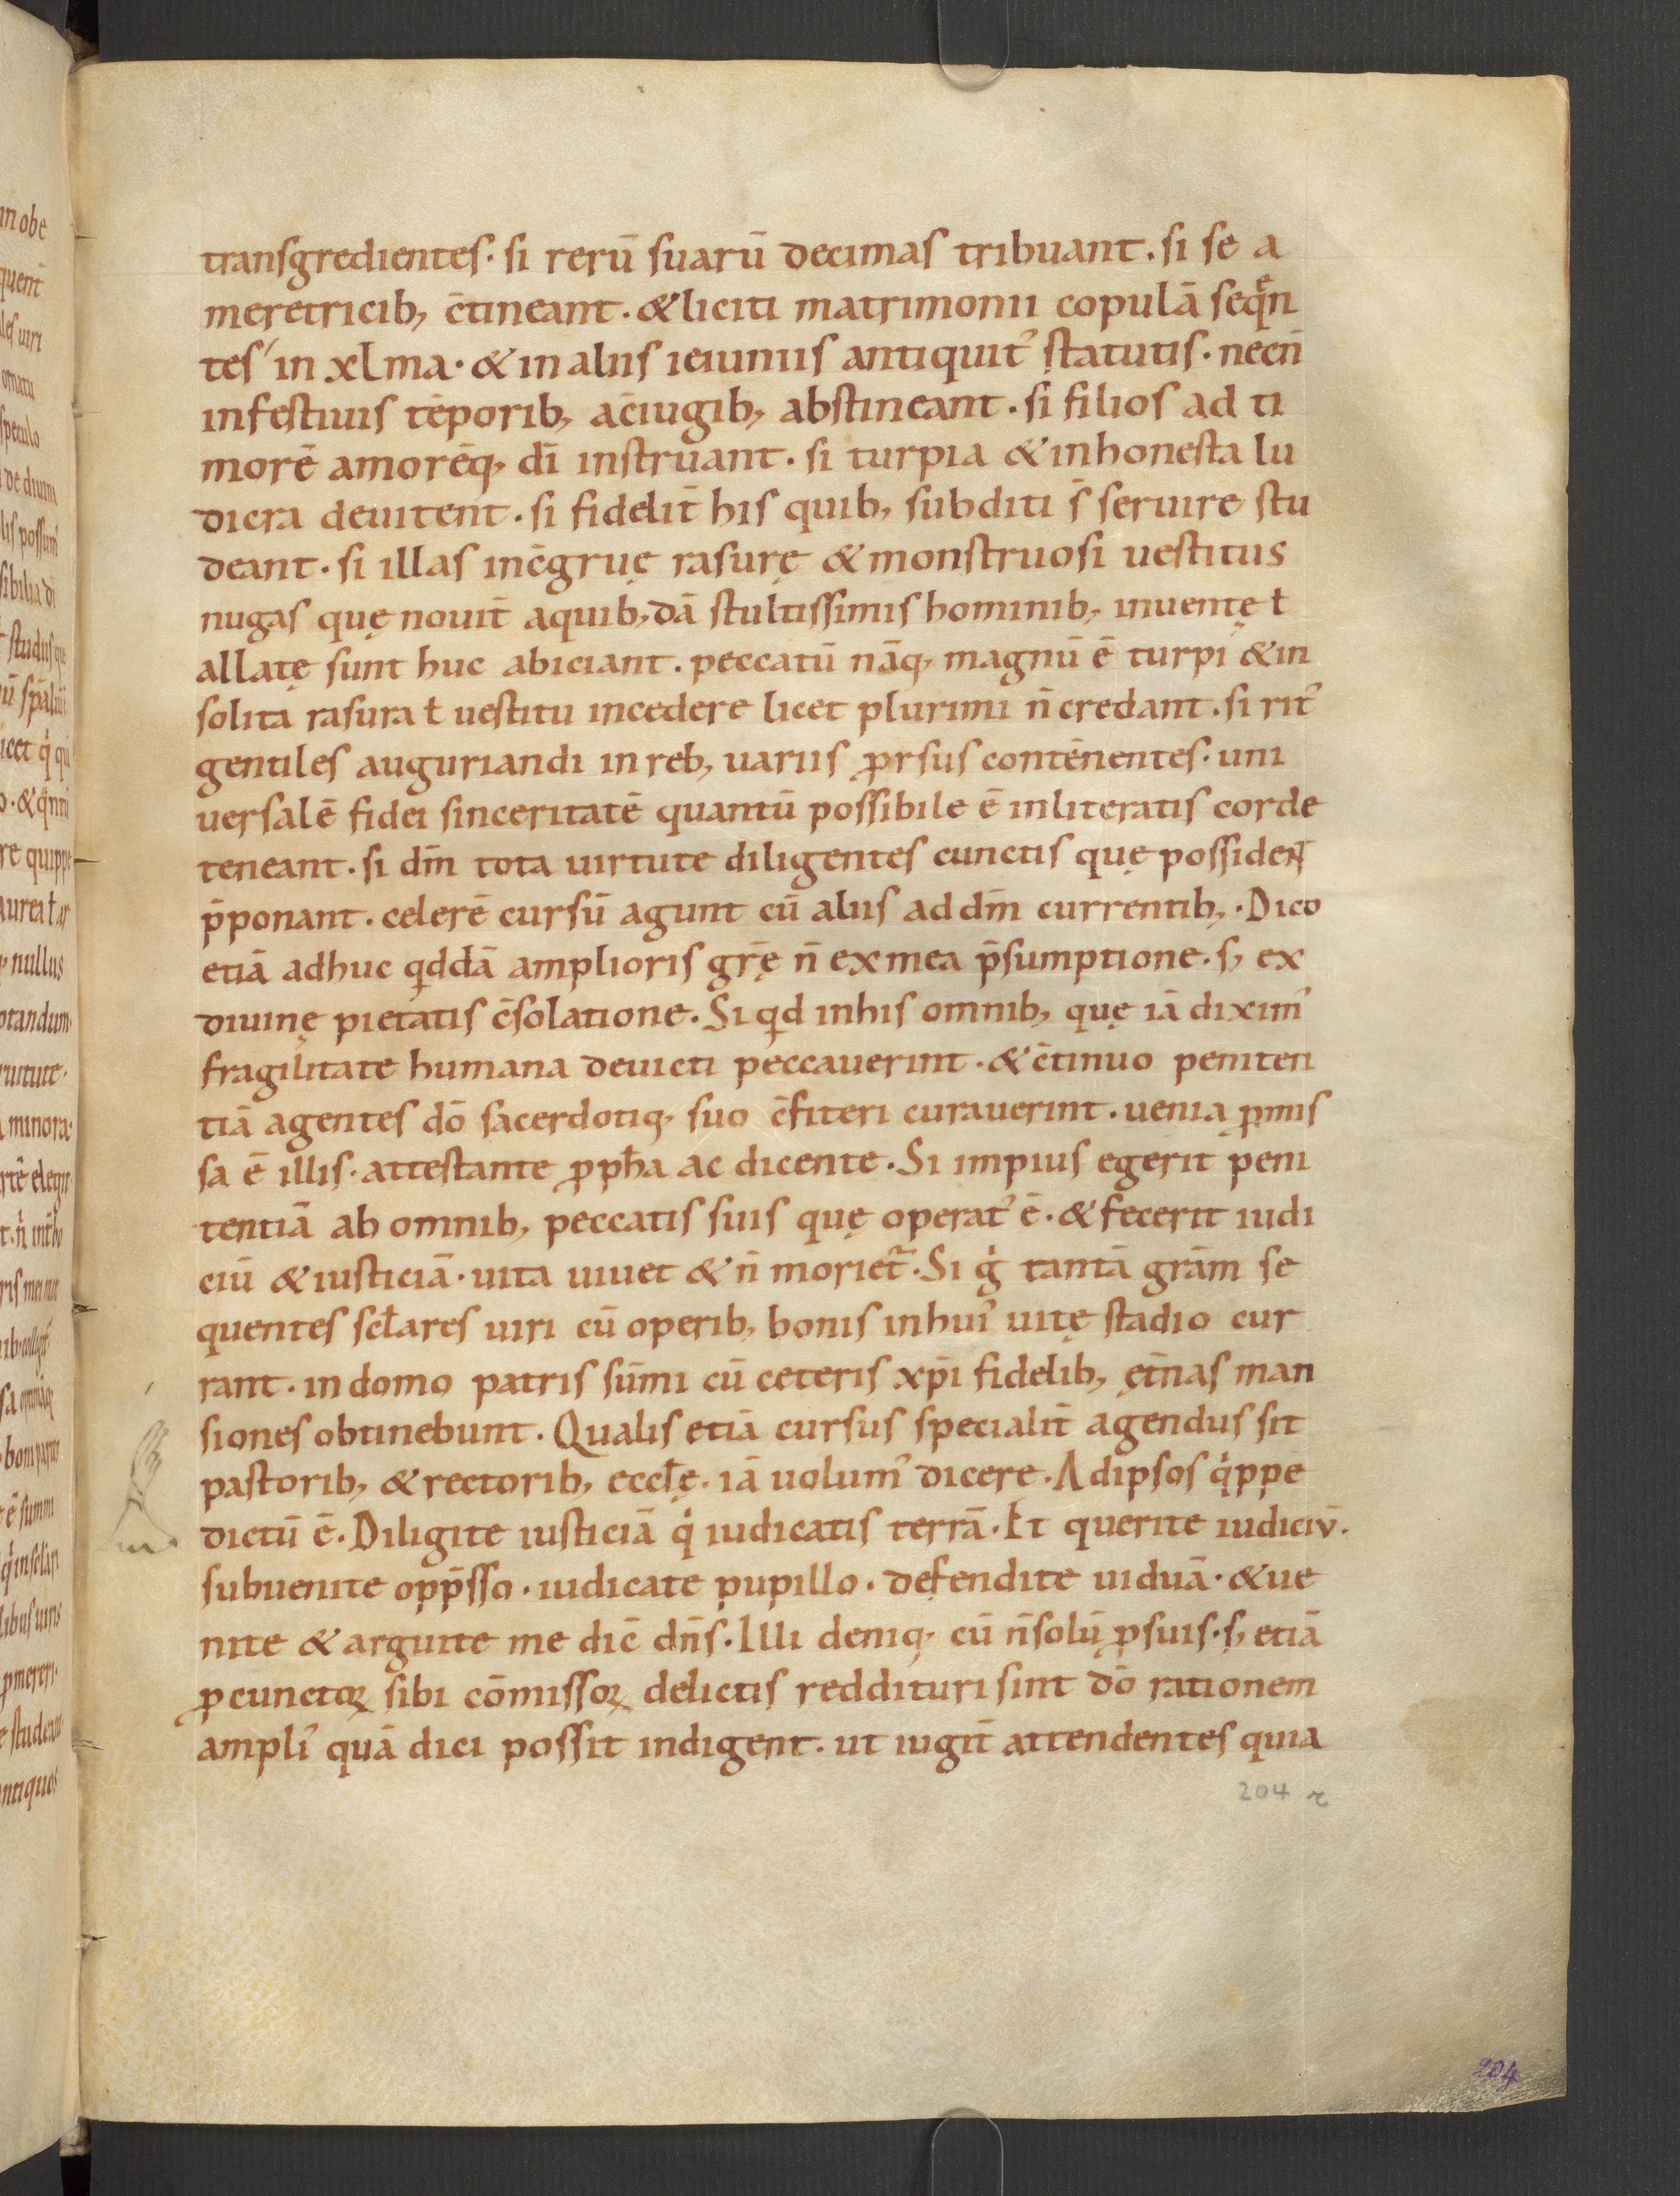 transgredientes· si rerū suarū decimas tribuant. si se a
meretricib; c̄tineant. & liciti matrimonii copulā seq̄n
tes in xlma· & in aliis ieiuniis antiquit᾿ statutis· necn̄
in festiuis tēporib; a c̄iugib; abstineant. si filios ad ti
morē amorēq; dī instruant. si turpia & inhonesta lu
dicra deuitent. si fidelit̄ his quib; subditi s̄ seruire stu
deant. si illas inc̄gruę rasurę & monstruosi uestitus
nugas quę nouit̄ a quib;dā stultissimis hominib; inuentę ł
allatę sunt huc abiciant. peccatū nāq; magnū ē turpi & in
solita rasura ł uestitu incedere licet plurimi n̄ credant. si rit᾿
gentiles auguriandi in reb; uariis ꝓrsus contēnentes· uni
uersalē fidei sinceritatē quantū possibile ē inliteratis corde
teneant. si dm̄ tota uirtute diligentes cunctis quę possident
p̄ponant. celerē cursū agunt cū aliis ad dm̄ currentib;. Dico
etiā adhuc qddā amplioris gr̄ę n̄ ex mea p̄sumptione. s; ex
diuinę pietatis c̄solatione. Si qd in his omnib; quę iā dixim᾿
fragilitate humana deuicti peccauerint. & c̄tinuo peniten
tiā agentes dō sacerdotiq; suo c̄fiteri curauerint. uenia ꝓmis
sa ē illis· attestante ꝓph̄a ac dicente. Si impius egerit peni
tentiā ab omnib; peccatis suis quę operat᾿ ē. & fecerit iudi
ciū & iusticiā· uita uiuet & n̄ moriet᾿. Si gͦ tantā grām se
quentes scłares uiri cū operib; bonis in hui᾿ uitę stadio cur
rant. in domo patris sūmi cū ceteris xpī fidelib; ęt̄nas man
siones obtinebunt. Qualis etiā cursus specialit̄ agendus sit
pastorib; & rectorib; eccłę. iā uolum᾿ dicere. Ad ipsos qͥppe
dictū ē. Diligite iusticiā qͥ iudicatis terrā. Et querite iudiciv̄.
subuenite opp̄sso. iudicate pupillo. defendite uiduā. & ue
nite & arguite me dic̄ dn̄s. Illi deniq; cū n̄ solū ꝓ suis. s; etiā
ꝓ cunctoꝝ sibi cōmissoꝝ delictis reddituri sint dō rationem
ampli᾿ quā dici possit indigent. ut iugit̄ attendentes quia
204 r
204